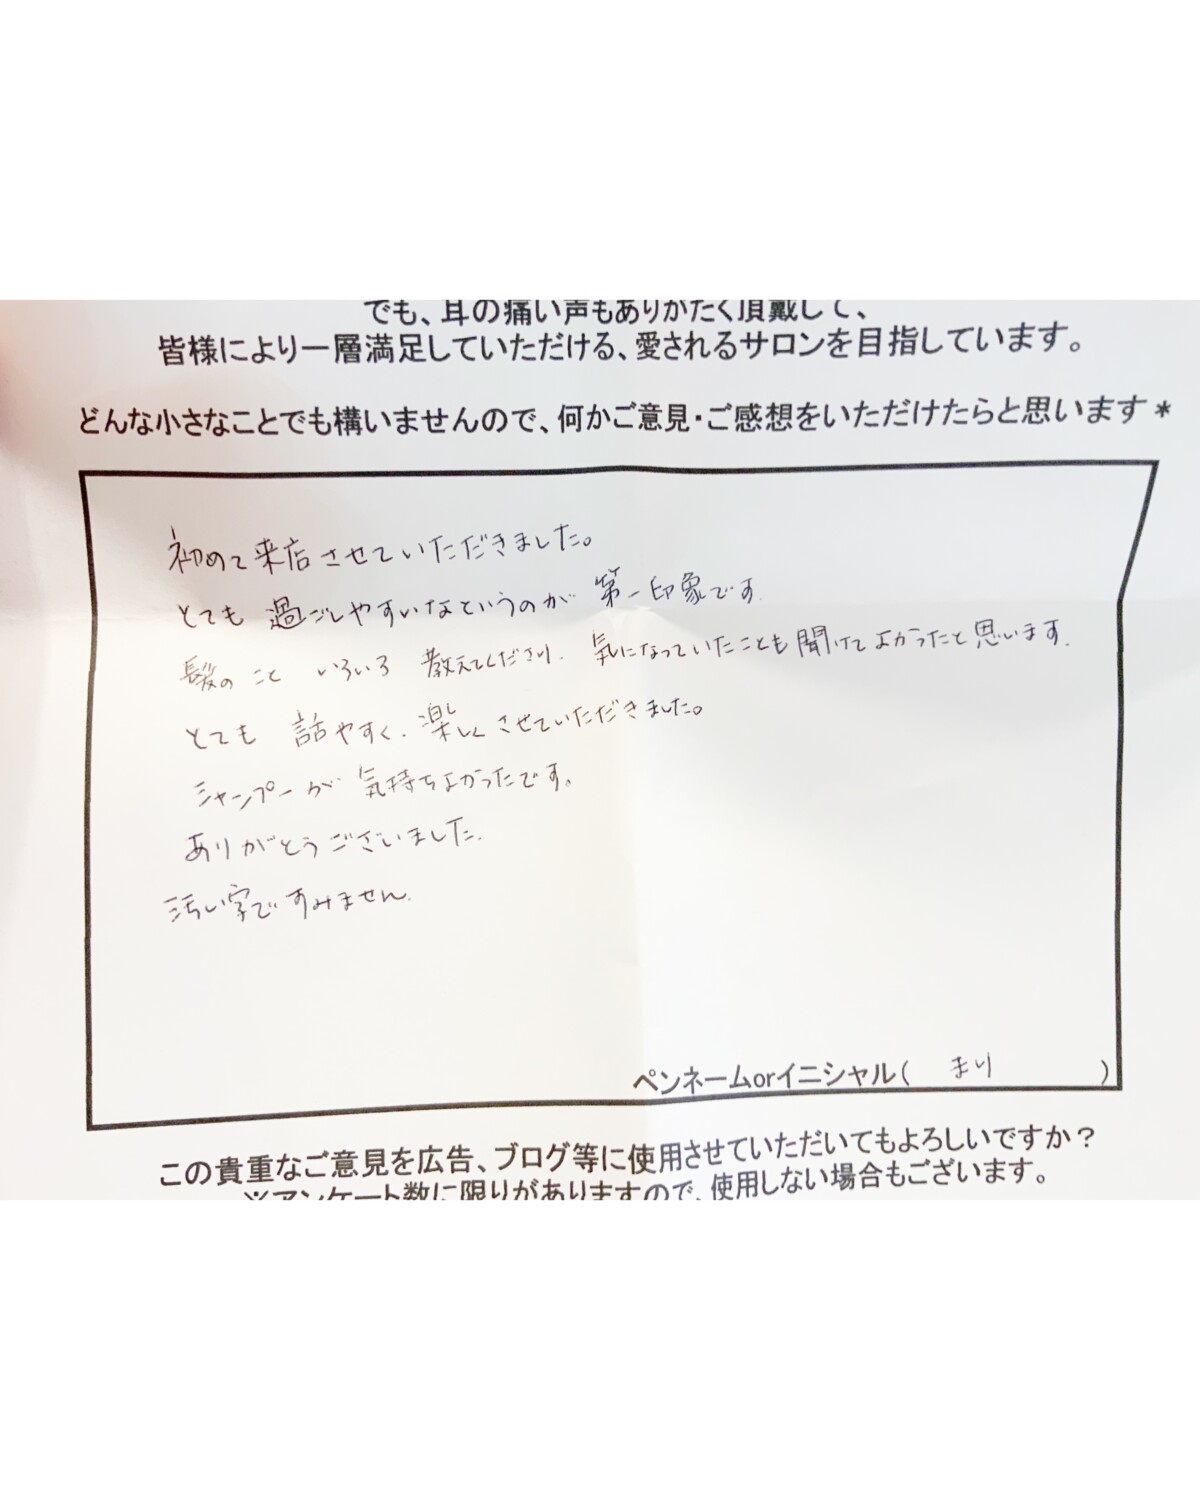 でも、耳の痛い声もありがたく頂戴して、
皆様により一層満足していただける、愛されるサロンを目指しています。
どんな小さなことでも構いませんので、何かご意見・ご感想をいただけたらと思います＊
初めて来店させていただきました。
とても 過ごしやすいなというのが 第一印象です.
髪のこと いろいろ 教えてくださり. 気になっていたことも聞けてよかったと思います.
とても 話やすく. 楽しくさせていただきました。
シャンプーが 気持ちよかったです。
ありがとうございました.
汚い字ですみません.
ペンネームorイニシャル( まり )
この貴重なご意見を広告、ブログ等に使用させていただいてもよろしいですか？
※アンケート数に限りがありますので、使用しない場合もございます。